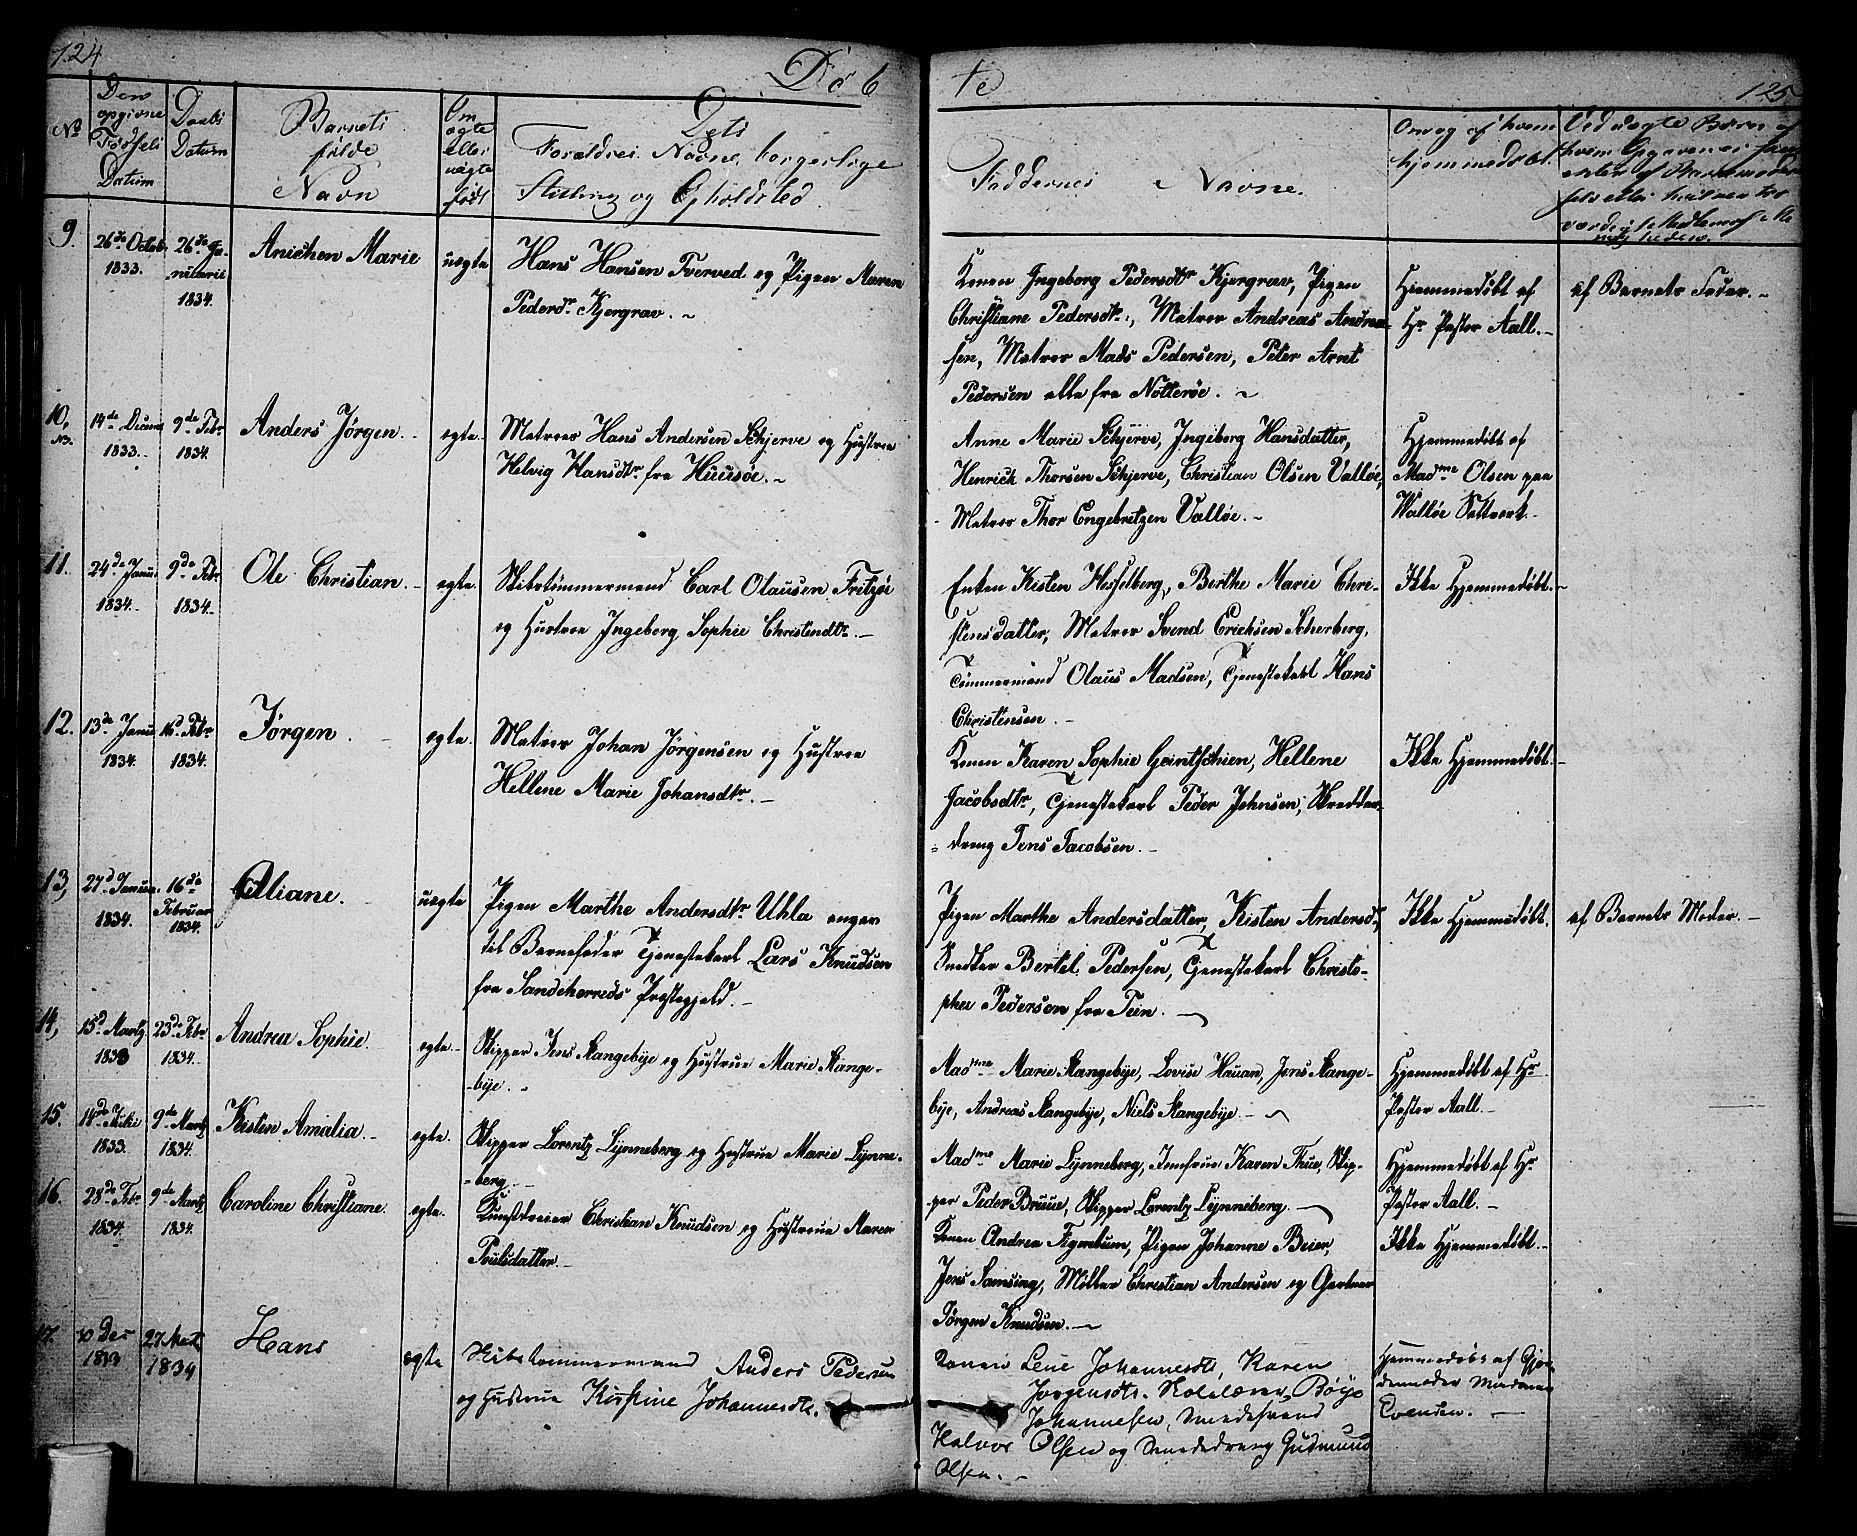 124
Døb
te
125
No
Den opgivne Fødsels Datum
Daabs Datum
Barnets fulde Navn
Om ægte eller uægte født
Dets Forældres Navne, borgerlige Stilling og Opholdsted.
Faddernes Navne.
Om og af hvem hjemmedøbt.
Ved uægte Børn af hvem Opgaven
9.
26de Octob. 1833.
26de Januarii 1834.
Anichen Marie
uægte
Hans Hansen Tverved og Pigen Maren
Pedersdr. Kjergrav. ~
Konen Ingeborg Pedersdtr Kjergrav, Pigen
Christiane Pedersdtr., Matros Andreas Andrea-
sen, Matros Mads Pedersen, Peter Arnt
Pedersen alle fra Nötteröe. ~
Hiemmedöbt af
Hr Pastor Aall. -
af Barnets Fader. ~
10.
14de Decem 1833.
9de Febr 1834.
Anders Jörgen.
egte.
Matros Hans Andersen Schjerve og Hustrue
Helvig Hansdtr fra Huusöe. ~
Anne Marie Schjerve, Ingeborg Hansdatter,
Henrich Thorsen Schjerve, Christian Olsen Vallöe,
Matros Thor Engebretzen Vallöe. ~
Hjemmedöbt af
Madme Olsen paa
Wallöe Saltverk.
11.
24de Janu. 1834.
9de Febr 1834.
Ole Christian.
egte.
Skibstömmermand Carl Olausen Fritzöe
og Hustrue Ingeborg Sophie Christendtr. -
Enken Kisten Hesselberg, Berthe Marie Chri-
stensdatter, Matros Svend Erichsen Scherberg,
Tömmermand Olaus Madsen, Tjenestekarl Hans
Christensen. -
Ikke Hjemmedöbt. -
12.
13de Janu 1834.
16d Febr 1834.
Jörgen.
egte.
Matros Johan Jörgensen og Hustrue
Hellene Marie Johansdtr. -
Konen Karen Sophie Grintschien, Hellene
Jacobsdtr, Tjenestekarl Peder Johnsen, Skrædder-
dreng Jens Jacobsen. -
Ikke Hjemmedöbt. -
13,
27d Janua. 1834.
16de Februar 1834.
Alliane.
uægte
Pigen Marthe Andersdtr Uhla anger
til Barnefader Tjenestekarl Lars Knudsen
fra Sandeherreds Præstegjeld. -
Pigen Marthe Andersdatter, Kisten Andersd,
Snedker Bertel Pedersen, Tjenestekarl Christo-
pher Pedersen fra Tein. -
Ikke Hjemmedöbt.
af Barnets Moder. -
14,
15d Martz 1833
23de Febr 1834.
Andrea Sophie.
egte.
Skipper Jens Stangebye og Hustrue Marie Stange-
bye. -
Madme Marie Stangebye, Lovise Hauan, Jens Stange-
bye, Andreas Stangebye, Niels Stangebye. -
Hjemmedöbt af Hr
Pastor Aall. -
15.
14de Julii 1833.
9de Martz 1834.
Kisten Amalia.
egte.
Skipper Lorentz Lynneberg og Hustrue Marie Lynne-
berg. -
Madme Marie Lynneberg, Jomfrue Karen Thue, Skip-
per Peder Bruue, Skipper Lorentz Lynneberg. -
Hjemmedöbt af Hr
Pastor Aall. -
16.
28de Febr. 1834.
9de Martz 1834.
Caroline Christiane.
egte.
Kunstdreier Christian Knudsen og Hustrue Maren
Poulsdatter. -
Konen Andrea Figenbum, Pigen Johanne Beier,
Jens Samsing, Möller Christian Andersen og Gartner
Jörgen Knudsen. -
Ikke Hjemmedöbt. -
17.
10 Dec 1833
27 Mart. 1834
Hans
ægte
Skibstømmermand Anders Pedersen
og Hustrue Kirstine Johannesdtr.
Konen Lene Johannesdtr, Karen
Jørgensdtr, Skolelærer Böye
Johannesen, Smedesvend
Halvor Olsen og Smededreng Gudmund
Olsen. -
Hjemmedøbt af Gjor-
demoder Madame
Evensen. -